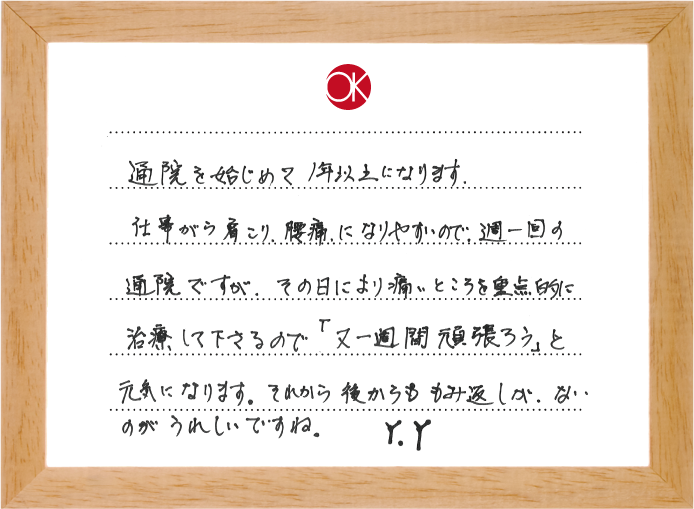 OK
通院を始じめて 1年以上になります.
仕事がら肩こり.腰痛.になりやすいので.週一回の
通院ですが. その日により痛いところを重点的に
治療して下さるので「又一週間頑張ろう」と
元気になります。それから後からももみ返しが.ない
のがうれしいですね。 Y.Y